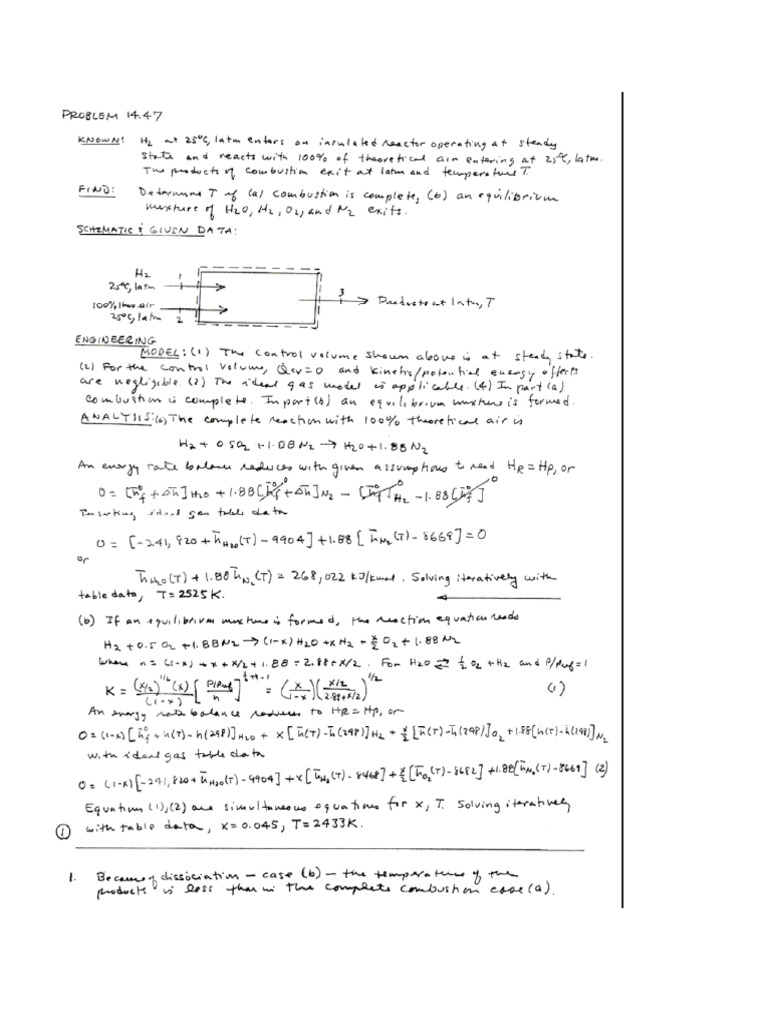 PROBLEM 14.47
KNOWN: H2 at 25°C, 1atm enters an insulated reactor operating at steady
state and reacts with 100% of theoretical air entering at 25°C, 1atm.
The products of combustion exit at 1atm and temperature T.
FIND: Determine T if (a) combustion is complete, (b) an equilibrium
mixture of H2O, H2, O2, and N2 exits.
SCHEMATIC & GIVEN DATA:
H2
25°C, 1atm
1
100% theo. air
25°C, 1atm
2
3
Products at 1atm, T
ENGINEERING
MODEL: (1) The control volume shown above is at steady state.
(2) For the control volume, Q̇cv=0 and kinetic/potential energy effects
are negligible. (3) The ideal gas model is applicable. (4) In part (a)
combustion is complete. In part (b) an equilibrium mixture is formed.
ANALYSIS: (a) The complete reaction with 100% theoretical air is
H2 + 0.5O2 + 1.88N2 → H2O + 1.88N2
An energy rate balance reduces with given assumptions to read HR = HP, or
0 = [h̄°f + Δh̄]H2O + 1.88[h̄°f + Δh̄]N2 − [h̄°f]H2 − 1.88[h̄°f]
Inserting ideal gas table data
0 = [-241,820 + h̄H2O(T) - 9904] + 1.88[h̄N2(T) - 8669] = 0
or
h̄H2O(T) + 1.88h̄N2(T) = 268,022 kJ/kmol. Solving iteratively with
table data, T = 2525K.
(b) If an equilibrium mixture is formed, the reaction equation reads
H2 + 0.5O2 + 1.88N2 → (1-x)H2O + xH2 + x/2 O2 + 1.88N2
where n = (1-x) + x + x/2 + 1.88 = 2.88 + x/2. For H2O ⇄ ½O2 + H2 and P/Pref = 1
K = (x/2)^1/2 (x) / (1-x) [P/Pref / n]^½+1-1 = (x/1-x)(x/2 / 2.88+x/2)^1/2 (1)
An energy rate balance reduces to HR = HP, or
0 = (1-x)[h̄°f + h̄(T) - h̄(298)]H2O + x[h̄(T) - h̄(298)]H2 + x/2[h̄(T) - h̄(298)]O2 + 1.88[h̄(T) - h̄(298)]N2
with ideal gas table data
0 = (1-x)[-241,820 + h̄H2O(T) - 9904] + x[h̄H2(T) - 8468] + x/2[h̄O2(T) - 8682] + 1.88[h̄N2(T) - 8669] (2)
Equations (1), (2) are simultaneous equations for x, T. Solving iteratively
① with table data, x = 0.045, T = 2433K.
1. Because of dissociation — case (b) — the temperature of the
products is less than in the complete combustion case (a).